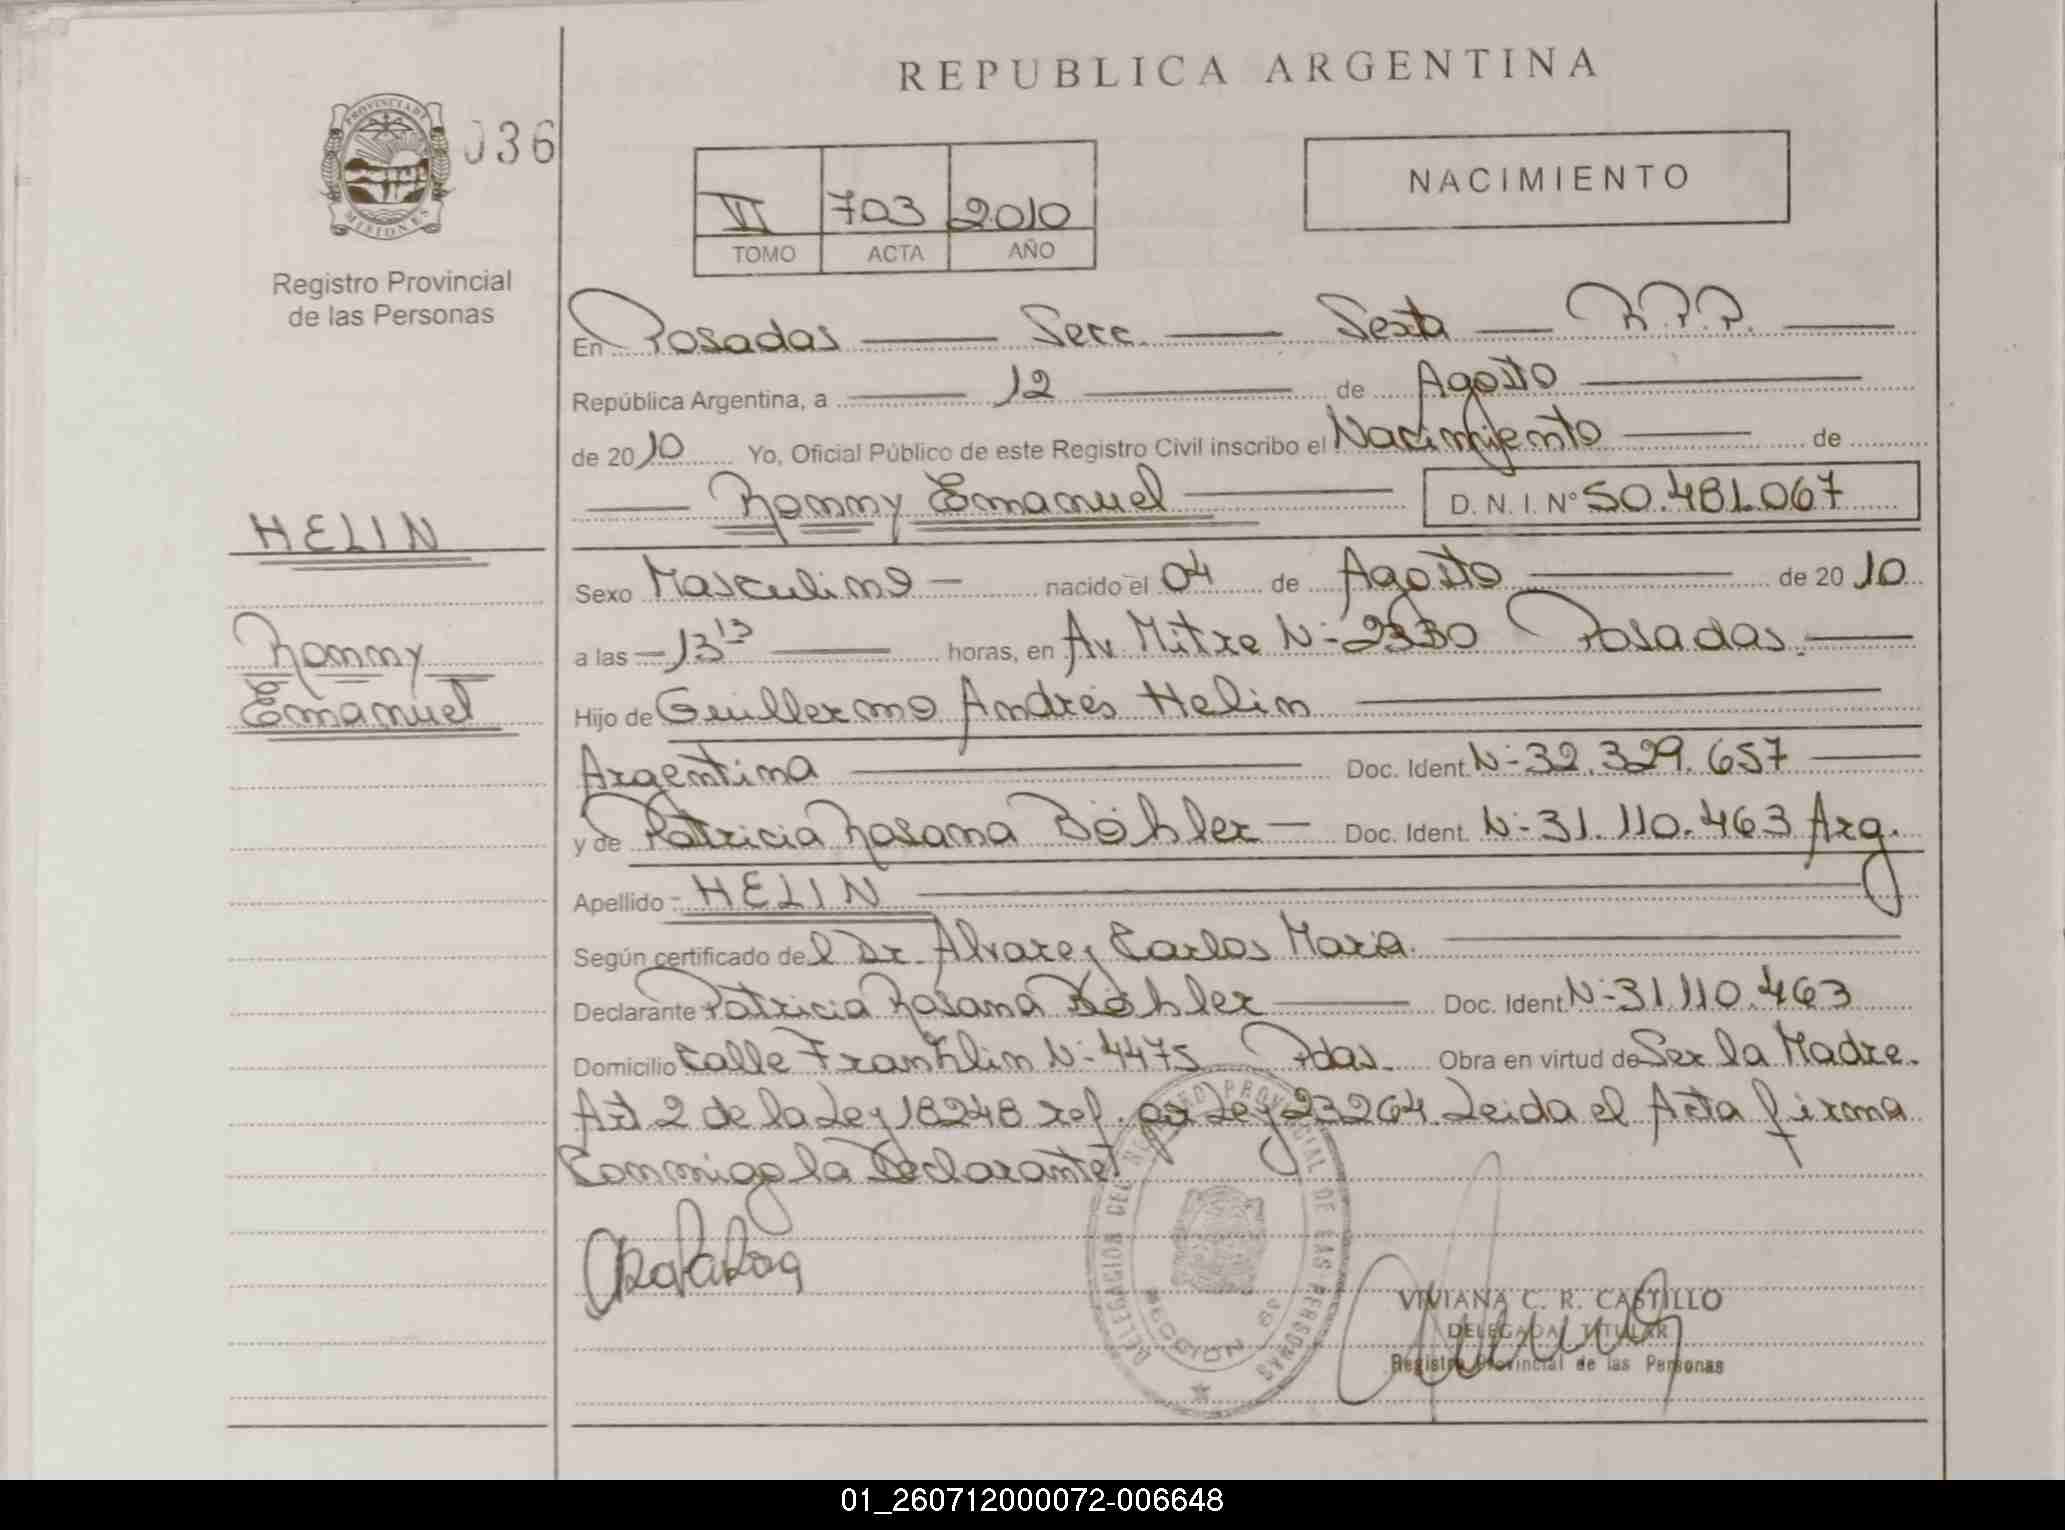 REPUBLICA ARGENTINA
PROVINCIA DE MISIONES
036
NACIMIENTO
VI 703 2010
TOMO ACTA AÑO
Registro Provincial
de las Personas
En Posadas Secc. Sexta R.P.P.
República Argentina, a 12 de Agosto
de 2010 Yo, Oficial Público de este Registro Civil inscribo el Nacimiento de
Ronny Emanuel D. N. I. N° 50.481.067
HELIN
Sexo Masculino nacido el 04 de Agosto de 2010
Ronny
a las 13 13 horas, en Av Mitre N- 2330 Posadas.
Emanuel
Hijo de Guillermo Andrés Helin
Argentina Doc. Ident. N- 32.329.657
y de Patricia Rosana Böhler Doc. Ident. N- 31.110.463 Arg.
Apellido HELIN
Según certificado del Dr. Alvarez Carlos Maria.
Declarante Patricia Rosana Böhler Doc. Ident. N- 31.110.463
Domicilio Calle Franklin N- 4475 Pdas. Obra en virtud de Ser la Madre.
Art 2 de la Ley 18248 ref. por Ley 23264. Leida el Acta firma
Conmigo la Declarante
DELEGACION DEL REGISTRO PROVINCIAL DE LAS PERSONAS
SECCION 6a
VIVIANA C. R. CASTILLO
DELEGADA TITULAR
Registro Provincial de las Personas
01_260712000072-006648